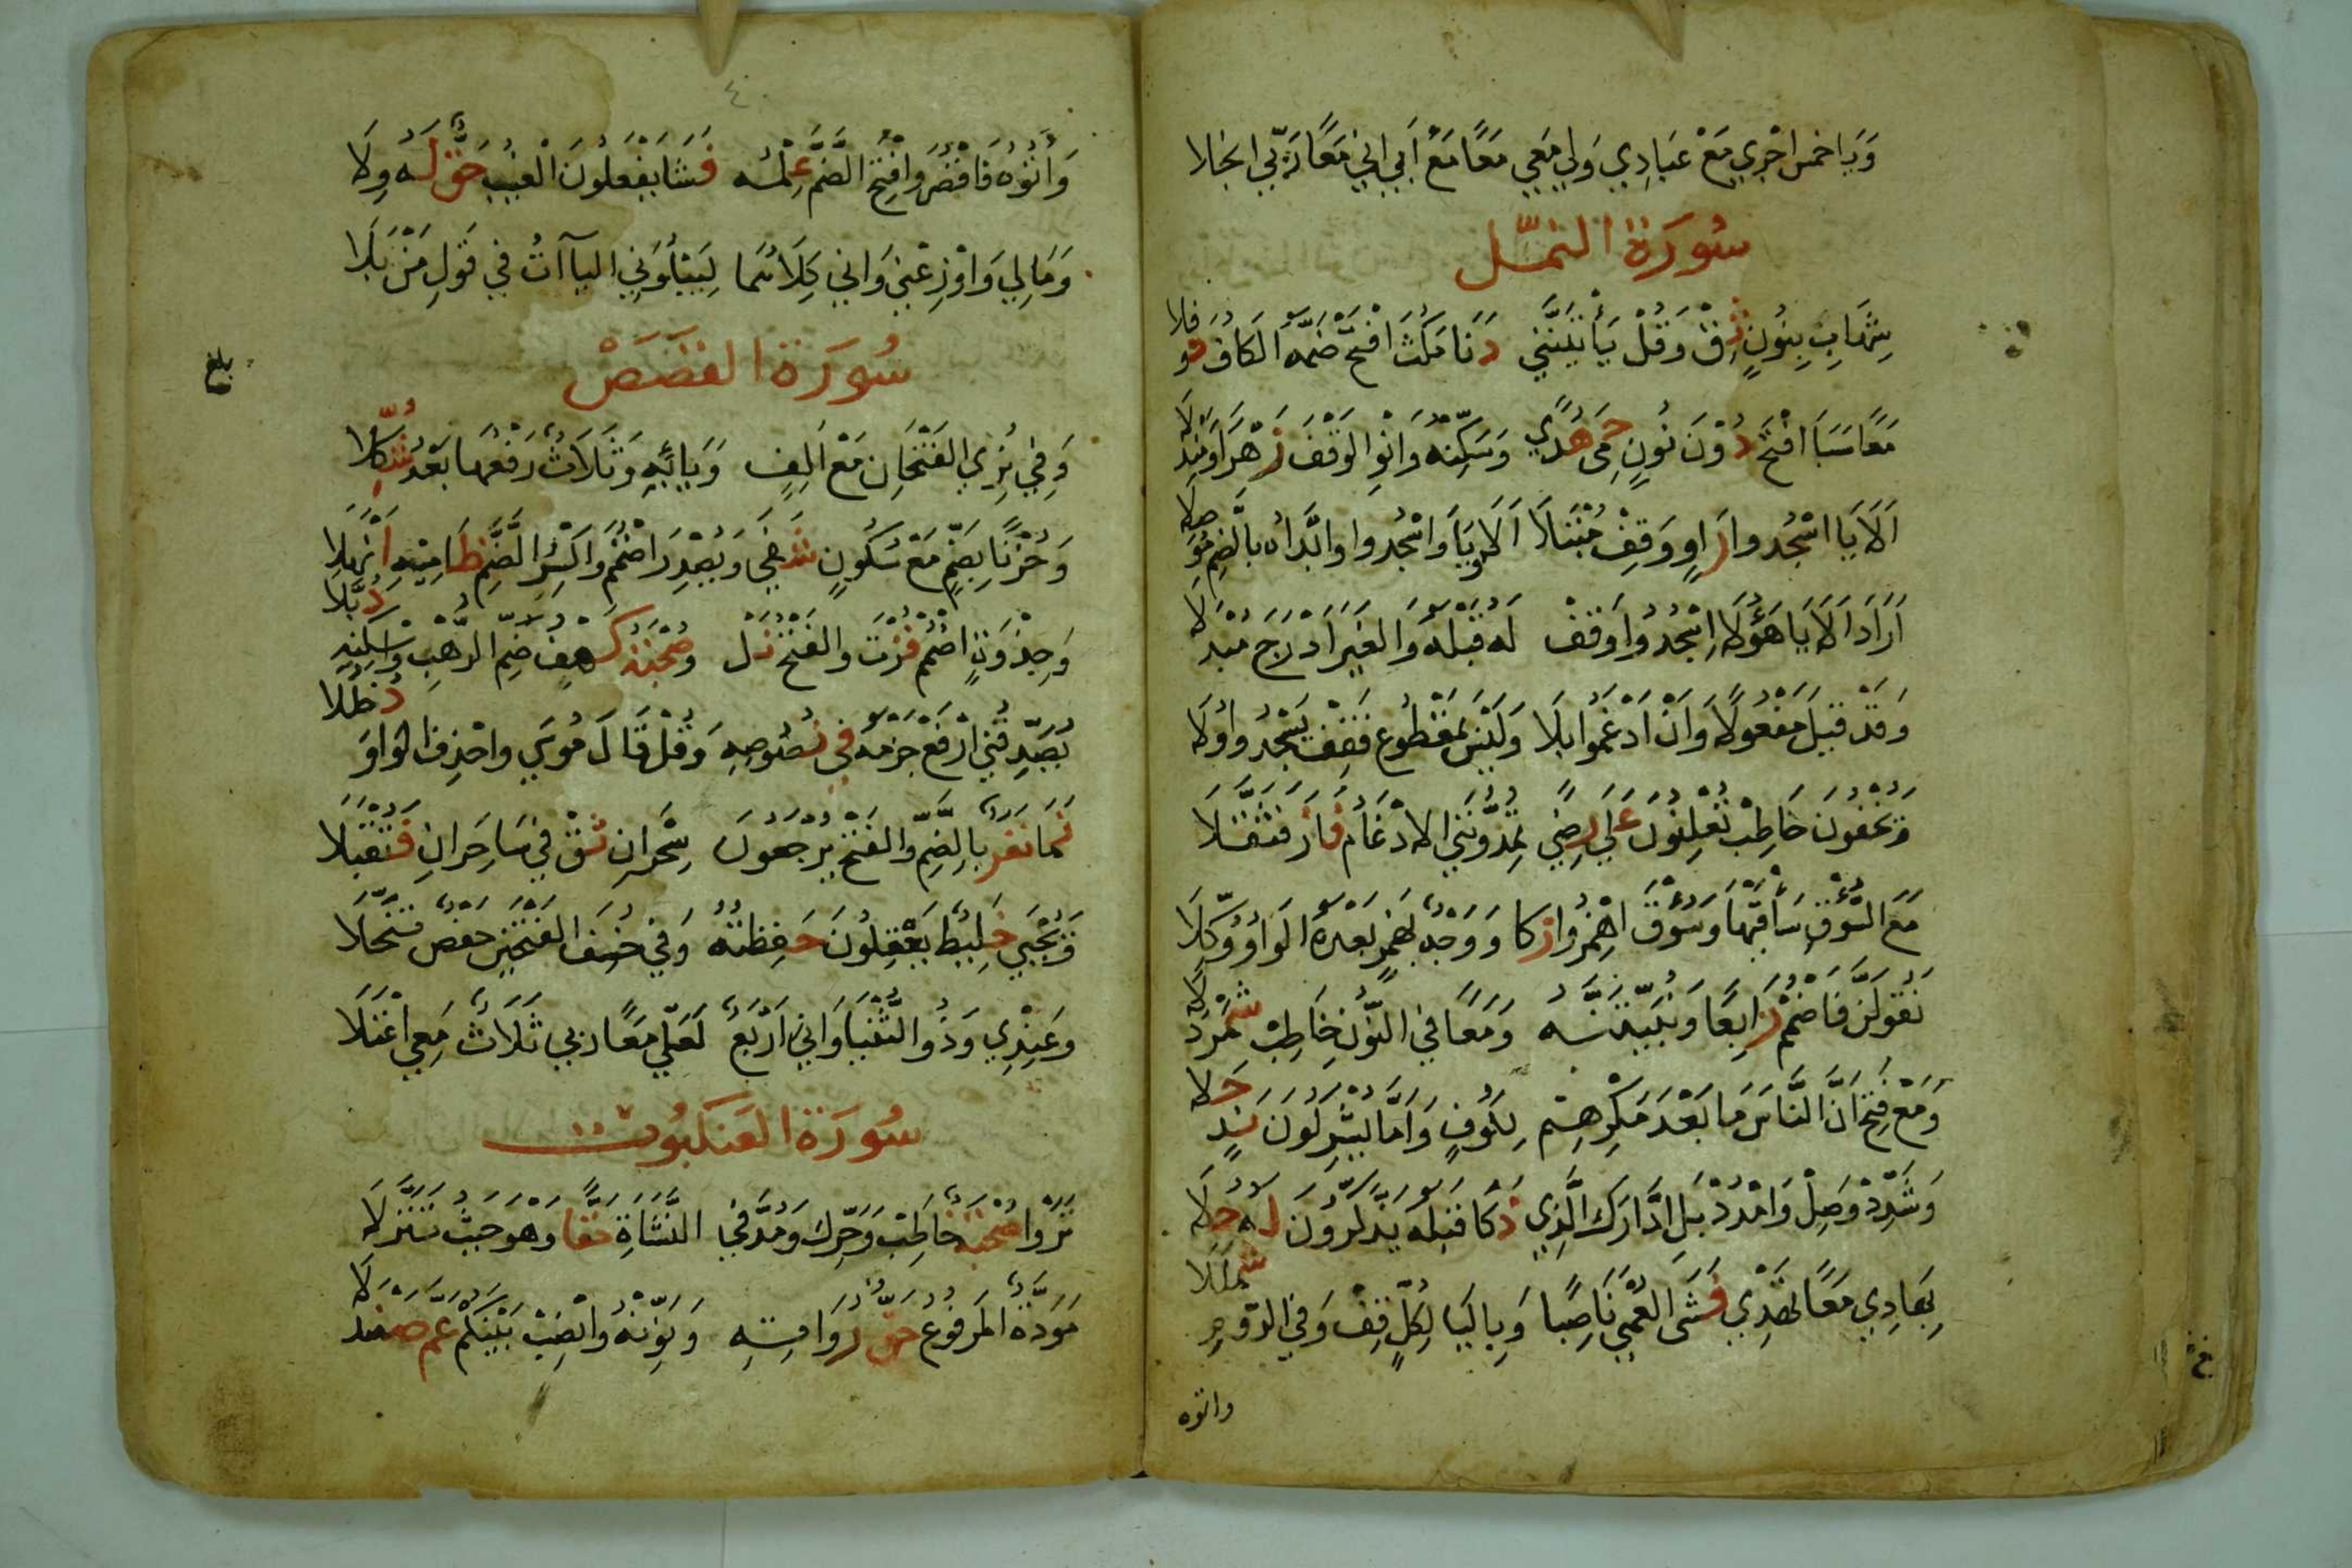 وَيَا خمس اجري مَعْ عِبَادِي وَلي مَعِي مَعًا مَعْ أَبي إني مَعًا رَبّي انجلا
سُورَة النمّل
شِهَابٍ بِنُونٍ ثِقْ وَقُلْ يَأْتِيَنَّنِي دَنَا مَكُثَ افْتَحْ ضَمَّةُ الكَافِ نَوفَلا
مَعًا سَبَأَ افْتَحْ دُوْنَ نُونٍ حِمًى هُدًى وَسَكِّنْهُ وَانْوِ الوَقْفَ زُهْرًا وَمَنْدَلَا
أَلَا يَا اسْجُدوا رَاوٍ وَقِفْ مُبْتَلًا أَلَا وَيَا وَاسْجُدوا وَابْدَأْهُ بالضَّمِّ مُوصِلَا
أَرَادَ أَلَا يَا هَؤُلَا اسْجُدُوا وَقِفْ لَهُ قَبْلَهُ وَالغَيْرُ أَدْرَجَ مُبْدِلَا
وَقَدْ قِيْلَ مَفْعُولًا وَأَنْ أَدْغَمُوا بِلَا وَلَيْسَ بِمَقْطُوعٍ فَقِفْ يَسْجُدُوا وَلَا
وَتُخْفُونَ خَاطِبْ تُعْلِنُونَ عَلَى رِضًى تُمِدُّونَنِي الإدْغَامُ فَازَ فَثَقَّلَا
مَعَ السُّوقِ سَأْقَيْهَا وَسُؤْقِ اهْمِزُوا زَكا وَوَجْهٌ بِهَمْزٍ بَعْدَهُ الوَاوُ وُكِّلَا
نَقُولَنَّ فَاضْمُمْ رَابِعًا وَنُبَيِّتَنَّهُ وَمَعًا فِي النُّونِ خَاطِبْ شَمَرْدَلَا
وَمَعْ فَتْحِ أَنَّ النَّاسَ مَا بَعْدَ مَكْرِهِمْ لِكُوفٍ وَأَمَّا يُشْرِكُونَ نَدٍ حَلَا
وَشَدِّدْ وَصِلْ وَامْدُدْ بَلِ ادَّارَكَ الَّذِي ذَكَا قَبْلَهُ يَذَّكَّرُونَ لَهُ حُلَا
بِهَادِي مَعًا تَهْدِي فَشَى العُمْيَ نَاصِبًا وَبِاليَا لِكُلٍّ قِفْ وَفِي الرُّومِ شَمْلَلَا
واتوه
٤٠
وَآتُوهُ فَاقْصُرْ وَافْتَحِ الضَّمَّ عِلْمُه فَشَا يَفْعَلُونَ الْغَيْبُ حَقٌّ لَهُ وِلَا
وَمَالِي وَأَوْزِعْنِي وَإِنِّي كِلَاهُمَا لِيَبْلُوَنِي اليَاآتُ فِي قَوْلِ مَنْ بَلَا
سُورَة القَصَصْ
بلغ
وَفِي نُرِي الفَتْحَانِ مَعْ أَلِفٍ وَيَائِهِ وَثَلَاثٌ رَفْعُهَا بَعْدُ شُكِّلا
وَحُزْنًا بِضَمٍّ مَعْ سُكُونٍ شَفَى وَيُصْدِرَ اضْمُمْ وَاكْسِرِ الضَّمَّ ظَامِيْهِ أَنْهَلا
وَجِذْوَةٍ اضْمُمْ فُزْتَ وَالفَتْحَ نَلْ وَصُحْبَةٌ كَهْفٌ ضَمِّ الرَّهْبِ وَاسْكِنْهُ ذُبَّلا
يُصَدِّقُنِي ارْفَعْ جَزْمَهُ فِي نُصُوصِهِ وَقُلْ قَالَ مُوسَى وَاحْذِفِ الوَاوَ دُخْلُلا
نَمَا نَفَرٌ بِالضَّمِّ وَالفَتْحِ يَرْجِعُونَ سِحْرَانِ ثِقْ فِي سَاحِرَانِ فَتُقْبَلا
وَيُجْبَى خَلِيْطٌ يَعْقِلُونَ حَفِظْتُهُ وَفِي خُسِفَ الفَتْحَيْنِ حَفْصٌ تَنَخَّلَا
وَعِنْدِي وَذُو الثُّنْيَا وَإِنِّي أَرْبَعٌ لَعَلِّي مَعًا رَبِّي ثَلَاثٌ مَعِي اعْتَلَا
سُورَة العَنكَبُوت
تَرَوْا صُحْبَةٌ خَاطِبْ وَحَرِّكْ وَمُدَّ فِي النَّشَاءَةِ حَقًّا وَهْوَ حَيْثُ تَنَزَّلَا
مَوَدَّةٌ المَرفُوعُ حَقُّ رُوَاتِهِ وَنَوِّنْهُ وَانْصِبْ بَيْنَكُمْ عَمَّ صَنْدَلَا